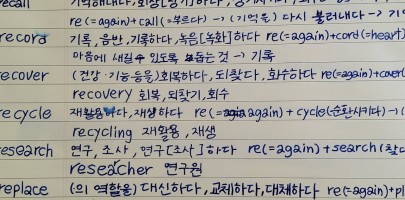 ecall 기억해내다, 회상[상기]하다,
re(=again)+call(=부르다) → (기억을) 다시 불러내다→
record 기록, 음반, 기록하다, 녹음[녹화]하다 re(=again)+cord(=heart)
마음에 내길 수 있도록 돕는 것 → 기록
recover (건강·기능등을)회복하다, 되찾다, 회수하다 re(=again)+cover(
recovery 회복, 되찾기, 회수
recycle 재활용하다, 재생하다 re(=again)+cycle(순환시키다)→(
recycling 재활용, 재생
esearch 연구, 조사, 연구[조사]하다 re(=again)+search(찾다
researcher 연구원
replace (의 역할을) 대신하다, 교체하다, 대체하다 re(=again)+pl